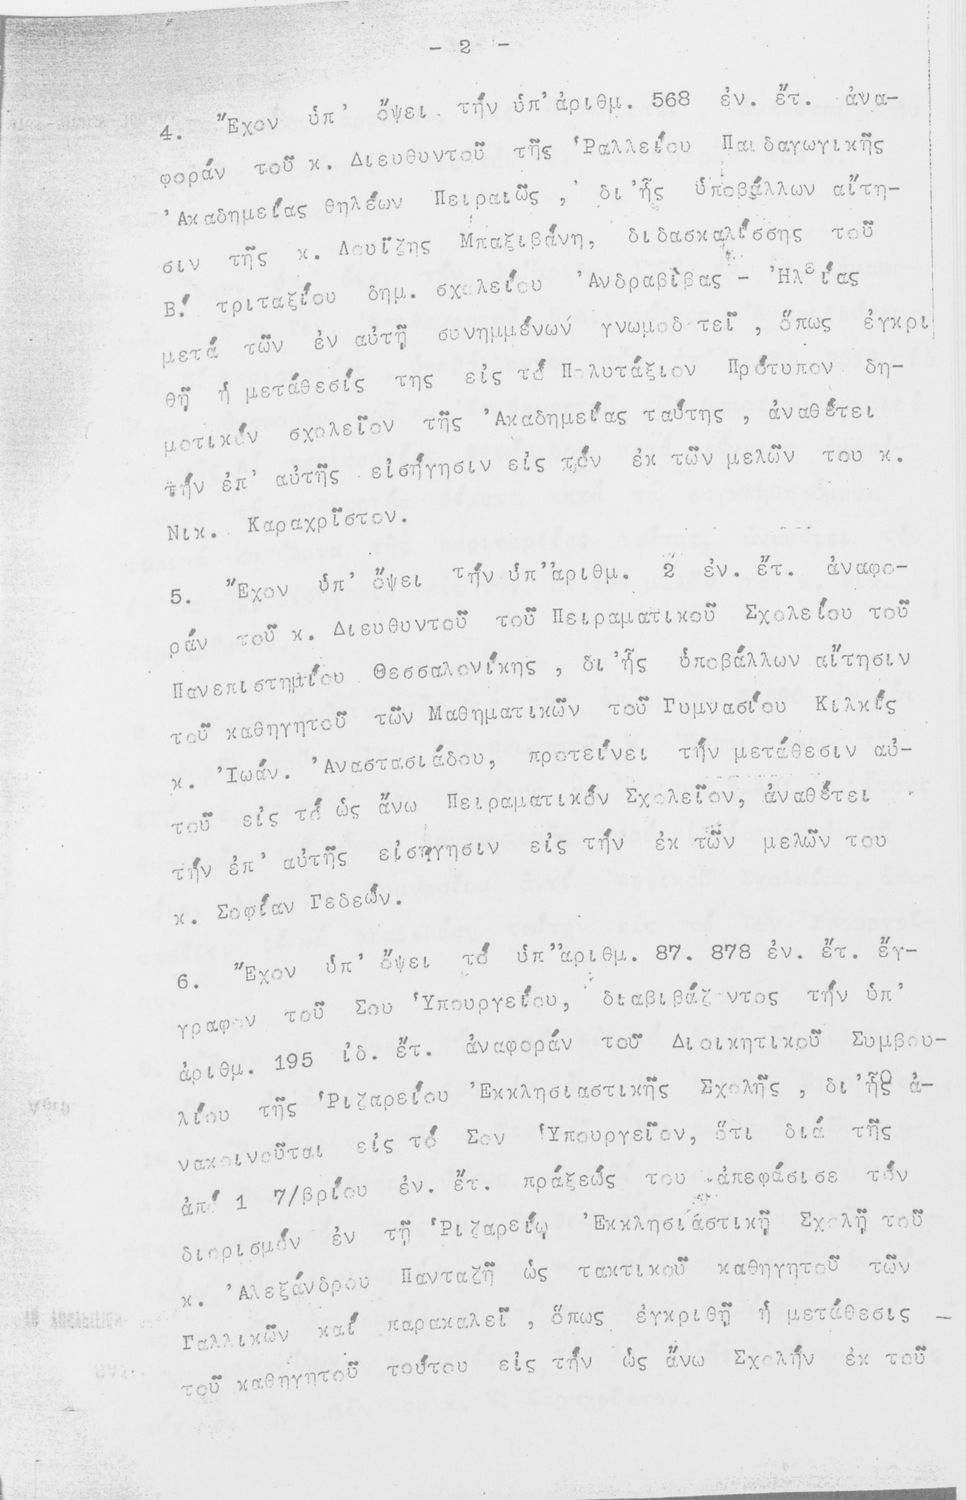 - 2 -
4. Ἔχον ὑπ' ὄψει τήν ὑπ'ἀριθμ. 568 ἐν. ἔτ. ἀνα-
φοράν τοῦ κ. Διευθυντοῦ τῆς Ῥαλλείου Παιδαγωγικῆς
'Ακαδημείας θηλέων Πειραιῶς , δι'ἧς ὑποβάλλων αἴτη-
σιν τῆς κ. Λουΐζης Μπαξιβάνη, διδασκαλίσσης τοῦ
Β! τριταξίου δημ. σχολείου 'Ανδραβίβας - Ἠλείας
μετά τῶν ἐν αὐτῇ συνημμένων γνωμοδοτεῖ , ὅπως ἐγκρι
θῇ ἡ μετάθεσίς της εἰς τό Πολυτάξιον Πρότυπον δη-
μοτικόν σχολεῖον τῆς 'Ακαδημείας ταύτης , ἀναθέτει
τήν ἐπ' αὐτῆς εἰσήγησιν εἰς τόν ἐκ τῶν μελῶν του κ.
Νικ. Καραχρῖστον.
5. Ἔχον ὑπ' ὄψει τήν ὑπ''ἀριθμ. 2 ἐν. ἔτ. ἀναφο-
ράν τοῦ κ. Διευθυντοῦ τοῦ Πειραματικοῦ Σχολείου τοῦ
Πανεπιστημίου Θεσσαλονίκης , δι'ἧς ὑποβάλλων αἴτησιν
τοῦ καθηγητοῦ τῶν Μαθηματικῶν τοῦ Γυμνασίου Κιλκίς
κ. 'Ιωάν. 'Αναστασιάδου, προτείνει τήν μετάθεσιν αὐ-
τοῦ εἰς τό ὡς ἄνω Πειραματικόν Σχολεῖον, ἀναθέτει
τήν ἐπ' αὐτῆς εἰσήγησιν εἰς τήν ἐκ τῶν μελῶν του
κ. Σοφίαν Γεδεών.
6. Ἔχον ὑπ' ὄψει τό ὑπ''ἀριθμ. 87. 878 ἐν. ἔτ. ἔγ-
γραφον τοῦ Σου Ὑπουργείου, διαβιβάζοντος τήν ὑπ'
ἀριθμ. 195 ἰδ. ἔτ. ἀναφοράν τοῦ Διοικητικοῦ Συμβου-
λίου τῆς Ῥιζαρείου 'Εκκλησιαστικῆς Σχολῆς , δι'ἧς ἀ-
νακοινοῦται εἰς τό Σον Ὑπουργεῖον, ὅτι διά τῆς
ἀπό 1 7/βρίου ἐν. ἔτ. πράξεώς του ἀπεφάσισε τόν
διορισμόν ἐν τῇ Ῥιζαρείῳ 'Εκκλησιαστικῇ Σχολῇ τοῦ
κ. 'Αλεξάνδρου Πανταζῆ ὡς τακτικοῦ καθηγητοῦ τῶν
Γαλλικῶν καί παρακαλεῖ , ὅπως ἐγκριθῇ ἡ μετάθεσις
τοῦ καθηγητοῦ τούτου εἰς τήν ὡς ἄνω Σχολήν ἐκ τοῦ